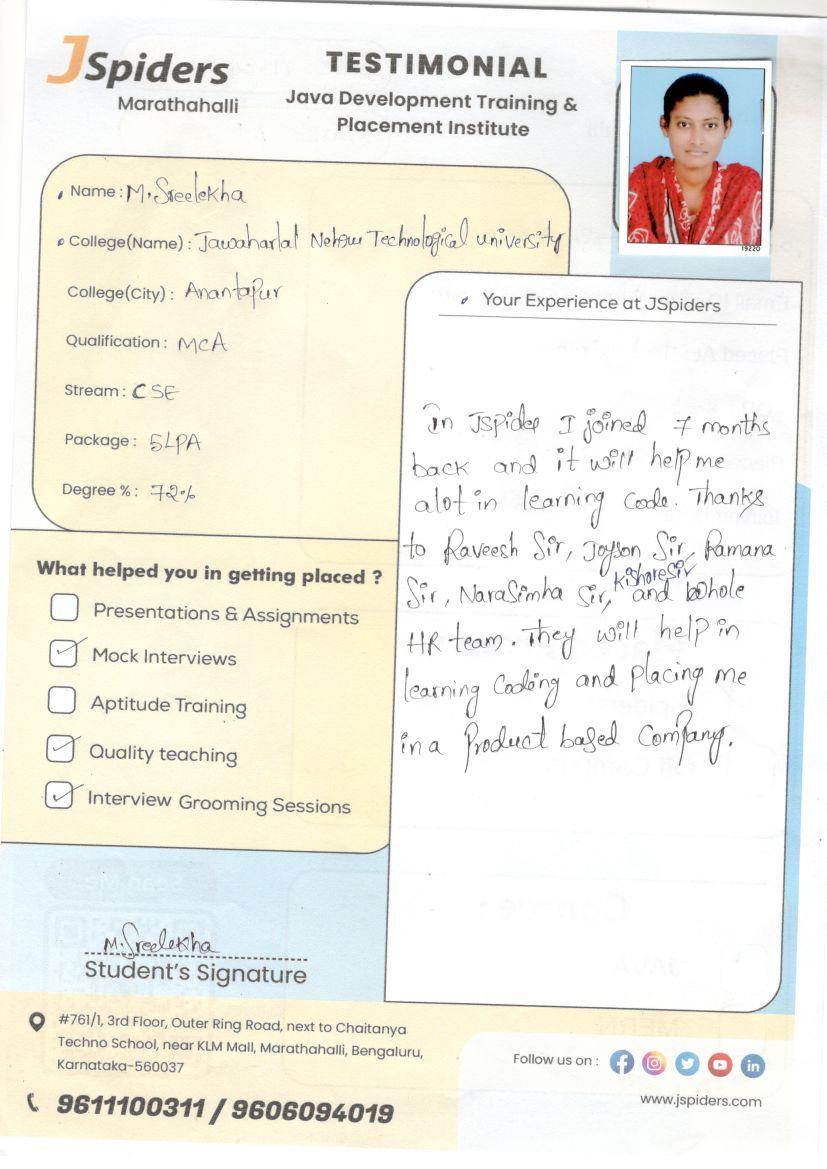 JSpiders
Marathahalli
TESTIMONIAL
Java Development Training &
Placement Institute
19220
Name : M.Sreelekha
College(Name) : Jawaharlal Nehru Technological university
College(City) : Anantapur
Qualification : MCA
Stream : CSE
Package : 5LPA
Degree % : 72%
What helped you in getting placed ?
Presentations & Assignments
Mock Interviews
Aptitude Training
Quality teaching
Interview Grooming Sessions
Your Experience at JSpiders
In Jspider I joined 7 months
back and it will help me
alot in learning code. Thanks
to Raveesh Sir, Joyson Sir, Ramana
Kishore Sir
Sir, Narasimha Sir, and whole
HR team. They will help in
learning Coding and placing me
in a Product based Company.
M.Sreelekha
Student's Signature
#761/1, 3rd Floor, Outer Ring Road, next to Chaitanya
Techno School, near KLM Mall, Marathahalli, Bengaluru,
Karnataka-560037
9611100311 / 9606094019
Follow us on :
www.jspiders.com